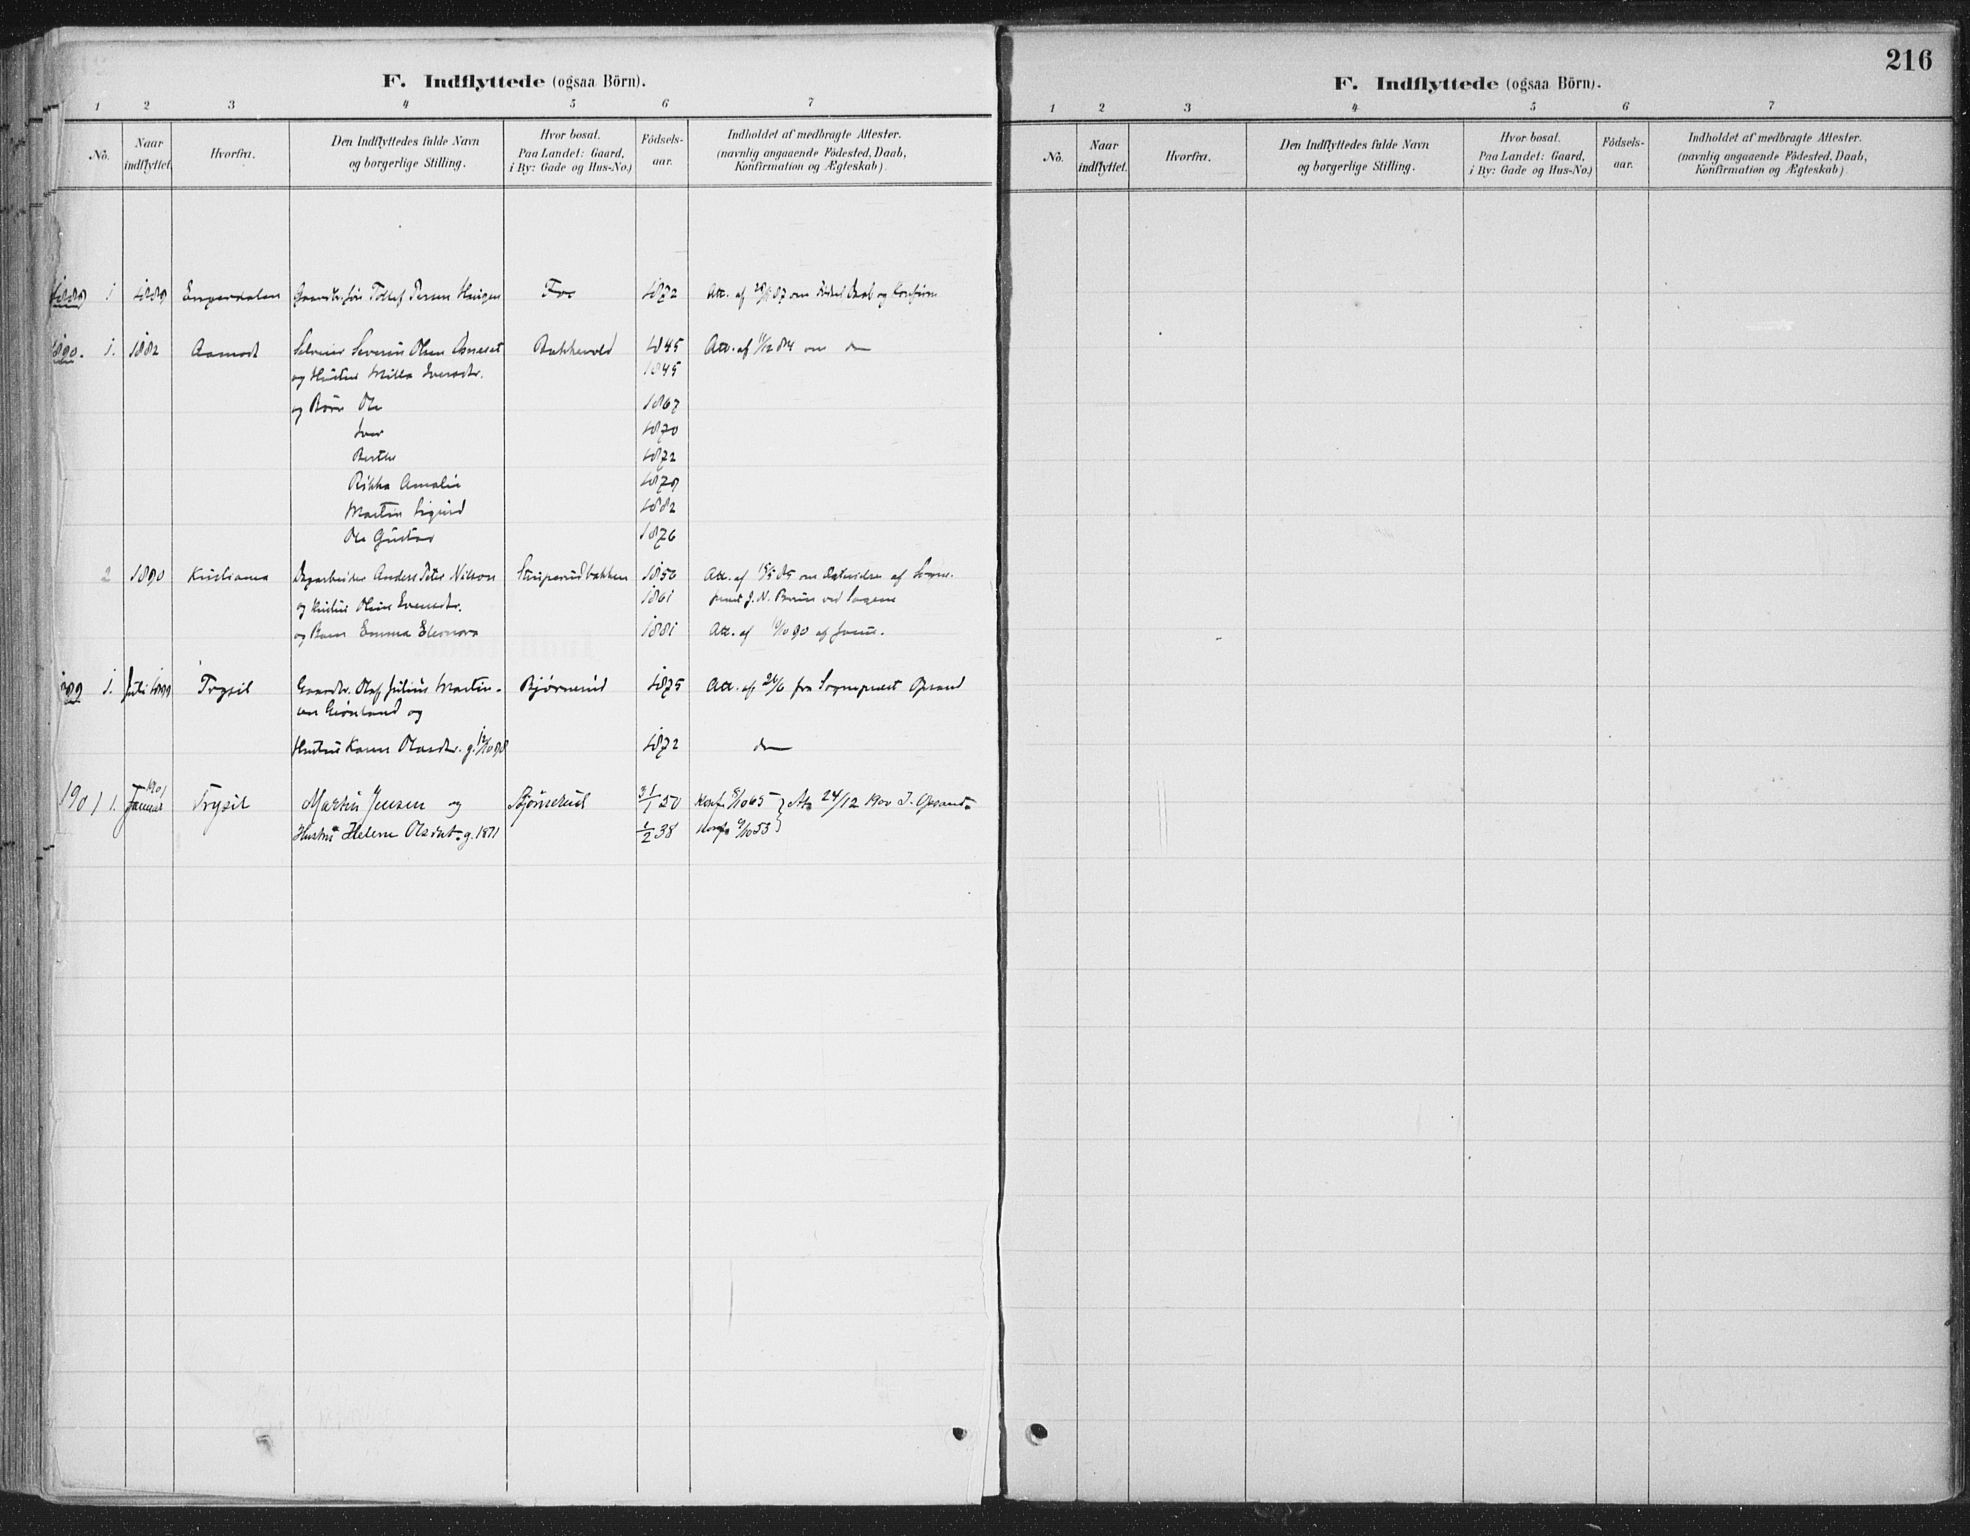 216
F. Indflyttede (ogsaa Börn).
1 2 3 4 5 6 7
No.
Naar indflyttet.
Hvorfra.
Den Indflyttedes fulde Navn
og borgerlige Stilling.
Hvor bosat.
Paa Landet: Gaard,
i By: Gade og Hus-No.)
Födsels-
aar.
Indholdet af medbragte Attester.
(navnlig angaaende Födested, Daab,
Konfirmation og Ægteskab).
1889 1 1889 Engerdalen Tollef Persen 1872 Att. af Daab og
1890. 1. 1882 Aamodt Severin Olsen 1845 Att. af 11/12 84 om do
og Hustru Milla Iversdtr. 1845
og Börn Ole 1867
Iver 1870
Berthe 1872
Rikka Amalie 1879
Martin Sigurd 1882
Ole Gustav 1876
2 1890 Kristiania Dagarbeider Anders Peter Nilson 1850 Att. af om af Sogne-
og Hustru Oline Svensdtr. 1861 prest J. N. Bruun ved
og Barn Emma Eleonora 1881 Att. af 90 af
1. Juli Trysil Gaardbr. Olaf Julius Martin- Bjørnerud 1875 Att. af 26/6 fra Sogneprest Opsand
sen Grönland og
Hustru Karen Olasdtr. g. 1872 do
1901 1. 1901 Januar Trysil Martin Jensen og 31/1 50 Konf. 8/10 65 Att. 24/12 1900 J. Opsand
Hustru Helene Olsdat. g. 1871 1/2 38 Konf. 9/10 53
F. Indflyttede (ogsaa Börn).
1 2 3 4 5 6 7
No.
Naar indflyttet.
Hvorfra.
Den Indflyttedes fulde Navn
og borgerlige Stilling.
Hvor bosat.
Paa Landet: Gaard,
i By: Gade og Hus-No.)
Födsels-
aar.
Indholdet af medbragte Attester.
(navnlig angaaende Födested, Daab,
Konfirmation og Ægteskab).